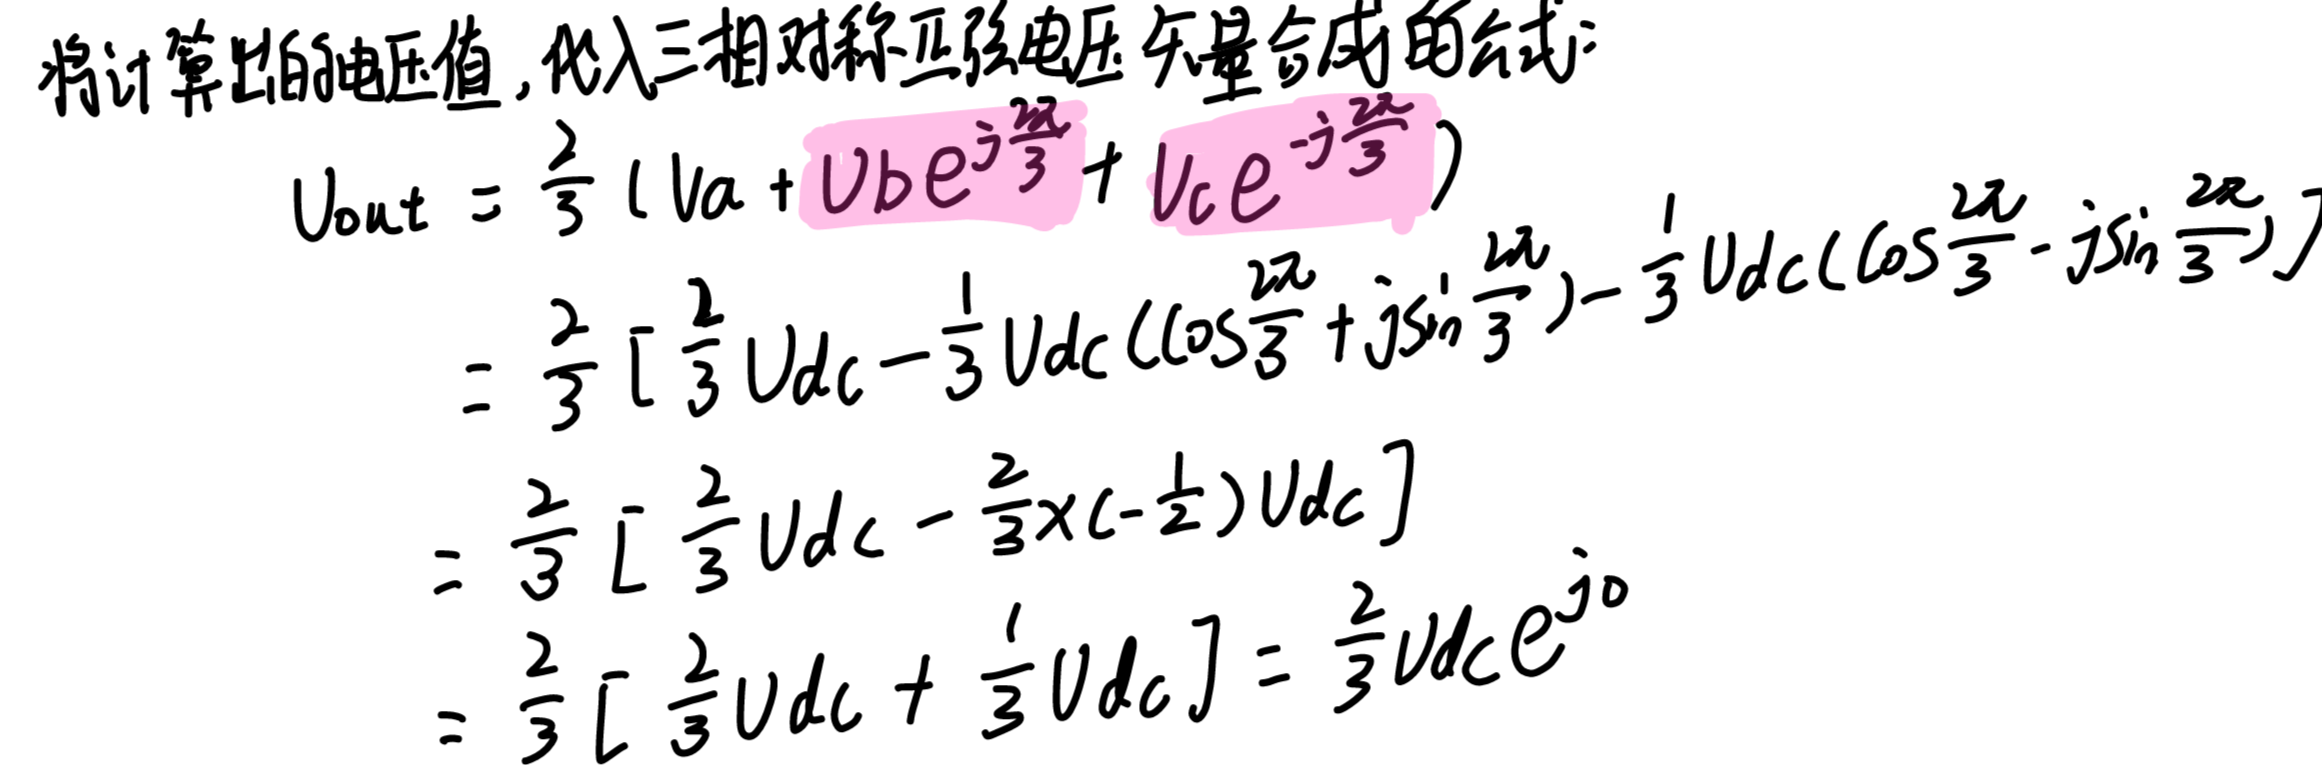 将计算出的电压值,代入三相对称正弦电压矢量合成的公式:
Uout = 2/3 (Ua + Ub e^{j2π/3} + Uc e^{-j2π/3})
= 2/3 [2/3 Udc - 1/3 Udc (cos 2π/3 + jsin 2π/3) - 1/3 Udc (cos 2π/3 - jsin 2π/3)]
= 2/3 [2/3 Udc - 2/3 × (-1/2) Udc]
= 2/3 [2/3 Udc + 1/3 Udc] = 2/3 Udc e^{j0}